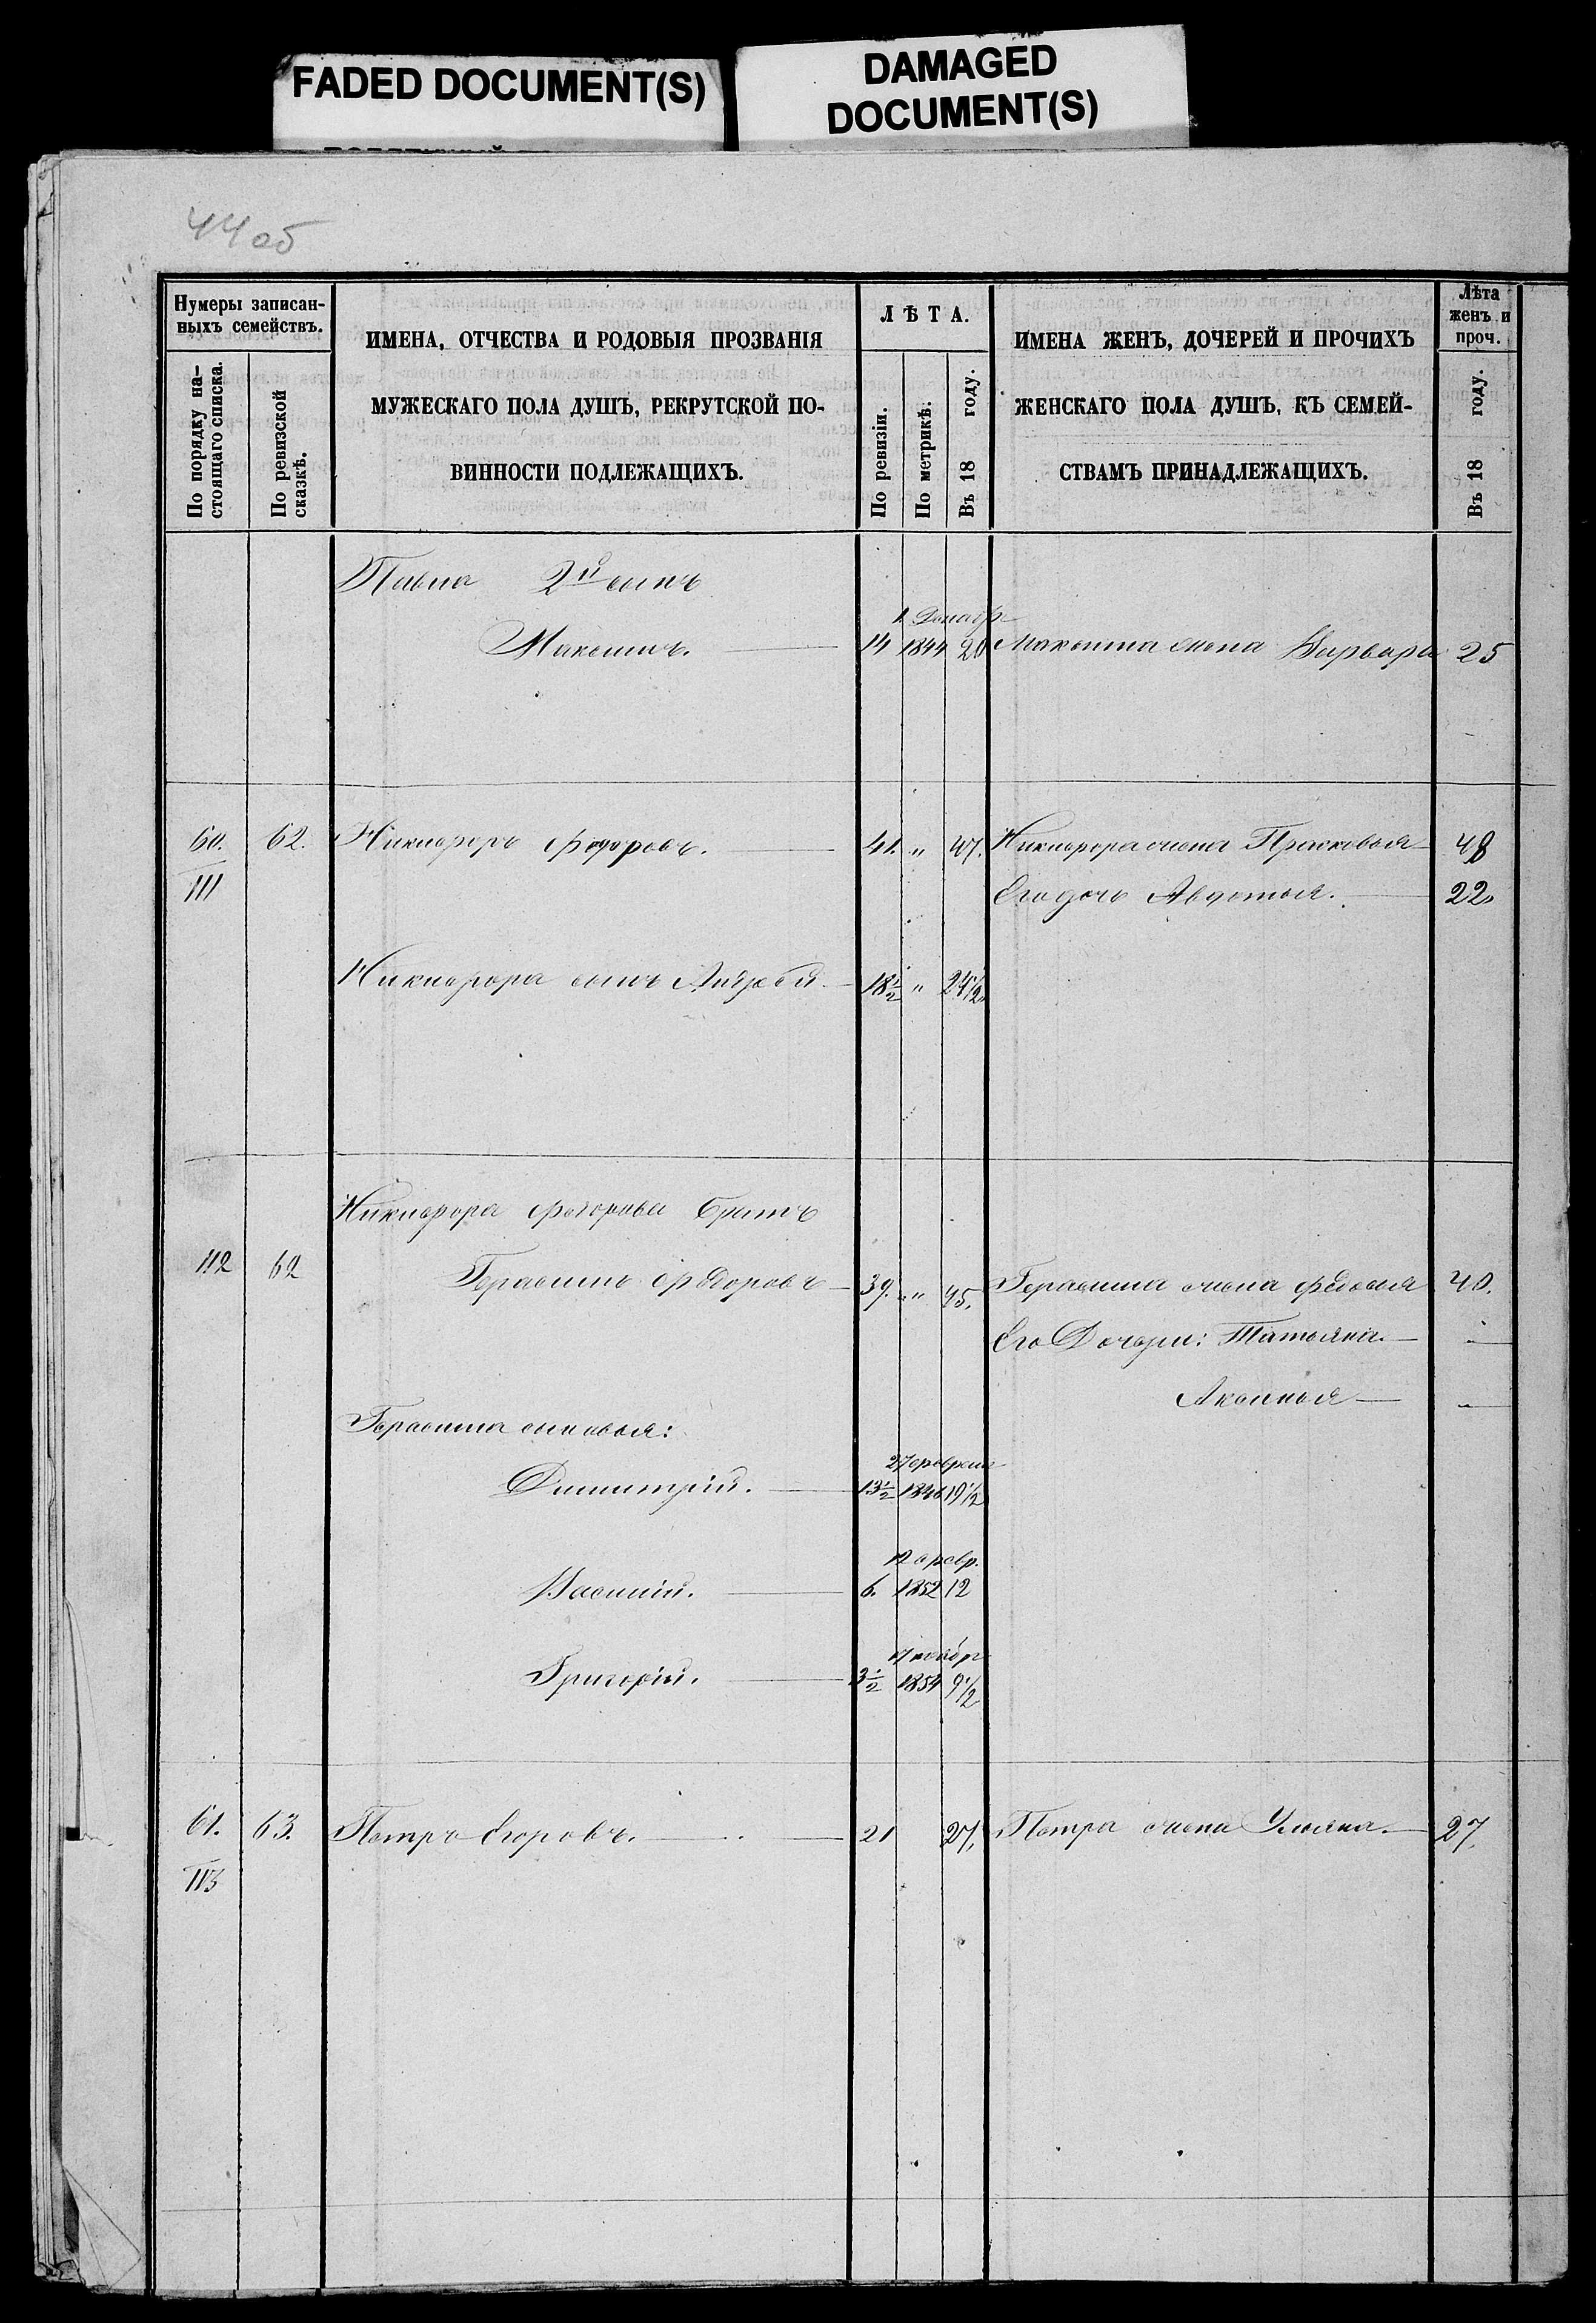 FADED DOCUMENT(S)
DAMAGED
DOCUMENT(S)
44 об
Нумеры записан-
ныхъ семействъ.
По порядку на-
стоящаго списка.
По ревизской
сказкѣ.
ИМЕНА, ОТЧЕСТВА И РОДОВЫЯ ПРОЗВАНІЯ
МУЖЕСКАГО ПОЛА ДУШЪ, РЕКРУТСКОЙ ПО-
ВИННОСТИ ПОДЛЕЖАЩИХЪ.
ЛѢТА.
По ревизіи.
По метрикѣ.
Въ 18 году.
ИМЕНА ЖЕНЪ, ДОЧЕРЕЙ И ПРОЧИХЪ
ЖЕНСКАГО ПОЛА ДУШЪ, КЪ СЕМЕЙ-
СТВАМЪ ПРИНАДЛЕЖАЩИХЪ.
Лѣта
женъ и
проч.
Въ 18 году.
Павла 2й сынъ
Максимъ. 14 1844 20 Максима жена Варвара 25
60. 62. Никифоръ Федоровъ. 41. „ 47. Никифора жена Прасковья 48
111 Его дочь Авдотья. 22.
Никифора сынъ Андрей 18½ „ 24½
Никифора Федорова братъ
112 62 Герасимъ Федоровъ 39. „ 45. Герасима жена Федосья 40.
Его Дочери: Татьяна. —
Аксинья —
Герасима сыновья:
27 февраля
Димитрій. 13½ 1846 19½
12 февр.
Василій. 6. 1852 12
17 ноябр
Григорій. 3½ 1854 9½
61. 63. Петръ Егоровъ. 21 27. Петра жена Ульяна. 27.
113